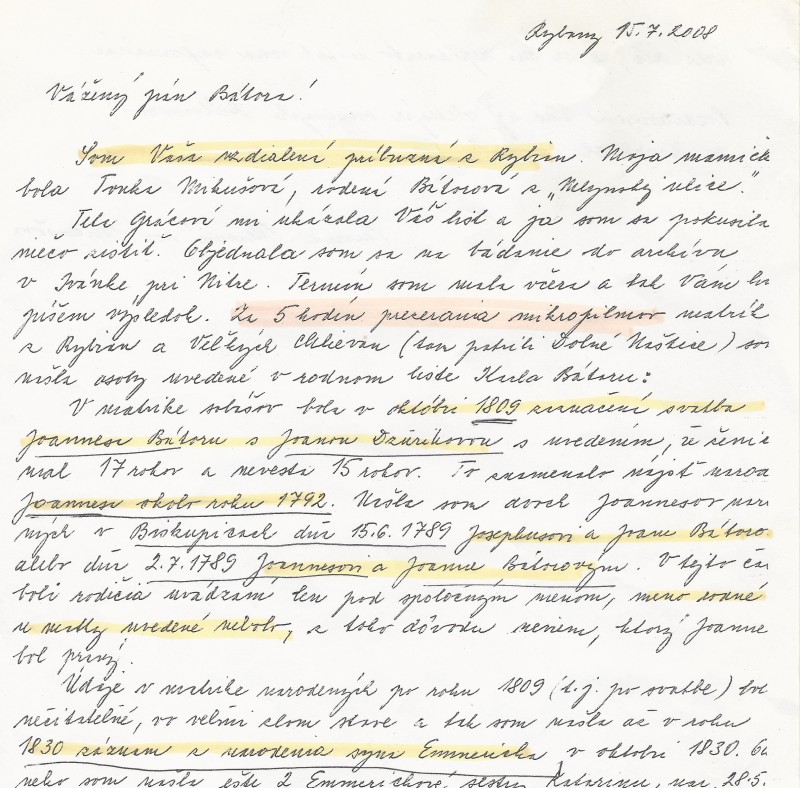 Rybany 15.7.2008
Vážený pán Bátora!
Som Vaša vzdialená príbuzná z Rybian. Moja mamičk
bola Tonka Mikušová, rodená Bátorová z „Mlynskej ulice."
Tela Grácová mi ukázala Váš list a ja som sa pokusila
niečo zistiť. Objednala som sa na bádanie do archívu
v Ivánke pri Nitre. Termín som mala včera a tak Vám
píšem výsledok. Za 5 hodín prezerania mikrofilmov matrík
z Rybian a Veľkých Chlievan (tam patrili Dolné Naštice) som
našla osoby uvedené v rodnom liste Karla Bátoru:
V matrike sobášov bola v októbri 1809 zaznačená svatba
Joannesa Bátoru s Joanou Dzúrikovou s uvedením, že ženíc
mal 17 rokov a nevesta 15 rokov. To znamenalo nájsť narod
Joannesa okolo roku 1792. Našla som dvoch Joannesov naro
ných v Biskupiciach dňa 15.6.1789 Josephusovi a Joane Bátoro
alebo dňa 2.7.1789 Joannesovi a Joanne Bátorovým. V tejto ča
boli rodičia uvádzaní len pod spoločným menom, meno rodné
u matky uvedené nebolo, z toho dôvodu neviem, ktorý Joanne
bol pravý.
Údaje v matrike narodených po roku 1809 (t.j. po svatbe) bol
nečitateľné, vo veľmi zlom stave a tak som našla až v roku
1830 záznam z narodenia syna Emmericha v októbri 1830.
neho som našla ešte 2 Emmerichové sestry Katarinu, nar. 28.5.